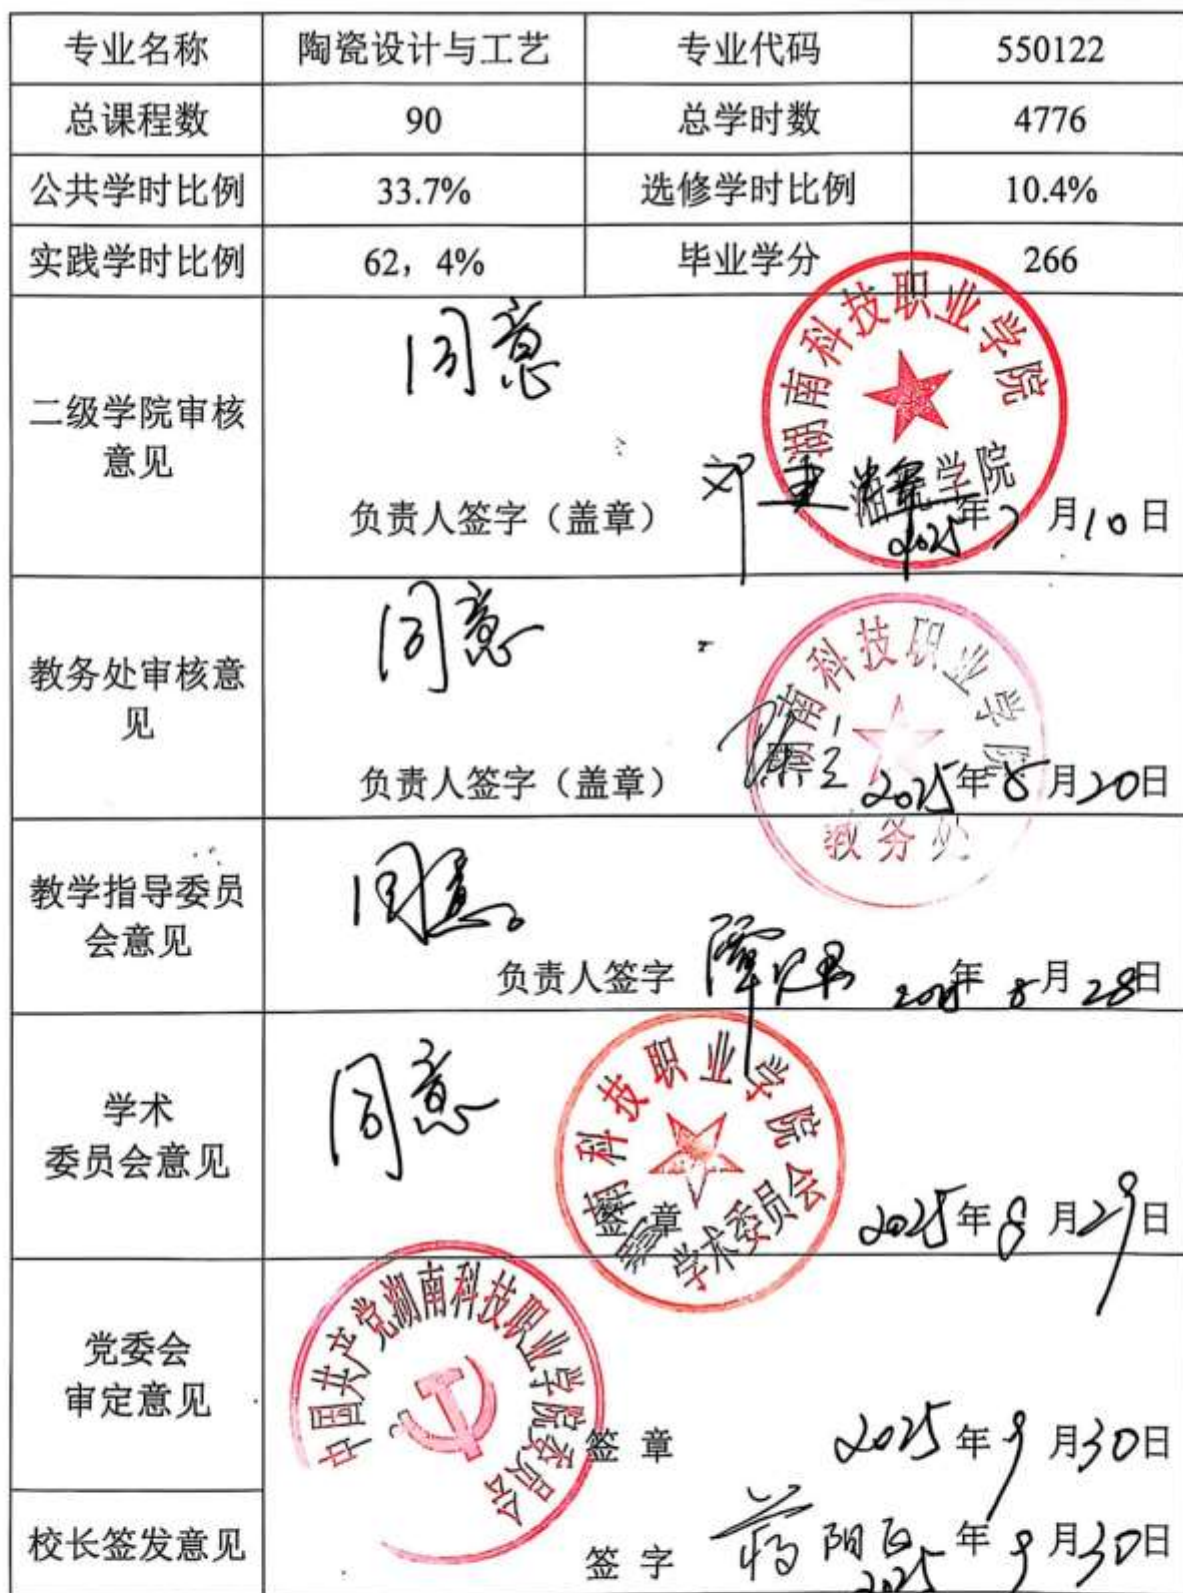 专业名称 陶瓷设计与工艺 专业代码 550122
总课程数 90 总学时数 4776
公共学时比例 33.7% 选修学时比例 10.4%
实践学时比例 62，4% 毕业学分 266
二级学院审核
意见
同意
湖南科技职业学院
陶瓷学院
负责人签字（盖章） 邓 2025年7月10日
教务处审核意
见
同意
湖南科技职业学院
教务处
负责人签字（盖章） 2025年8月20日
教学指导委员
会意见
同意。
负责人签字 2025年8月28日
学术
委员会意见
同意
湖南科技职业学院
学术委员会
签 章 2025年8月29日
党委会
审定意见
中国共产党湖南科技职业学院委员会
签 章 2025年9月30日
校长签发意见
签 字 2025年9月30日